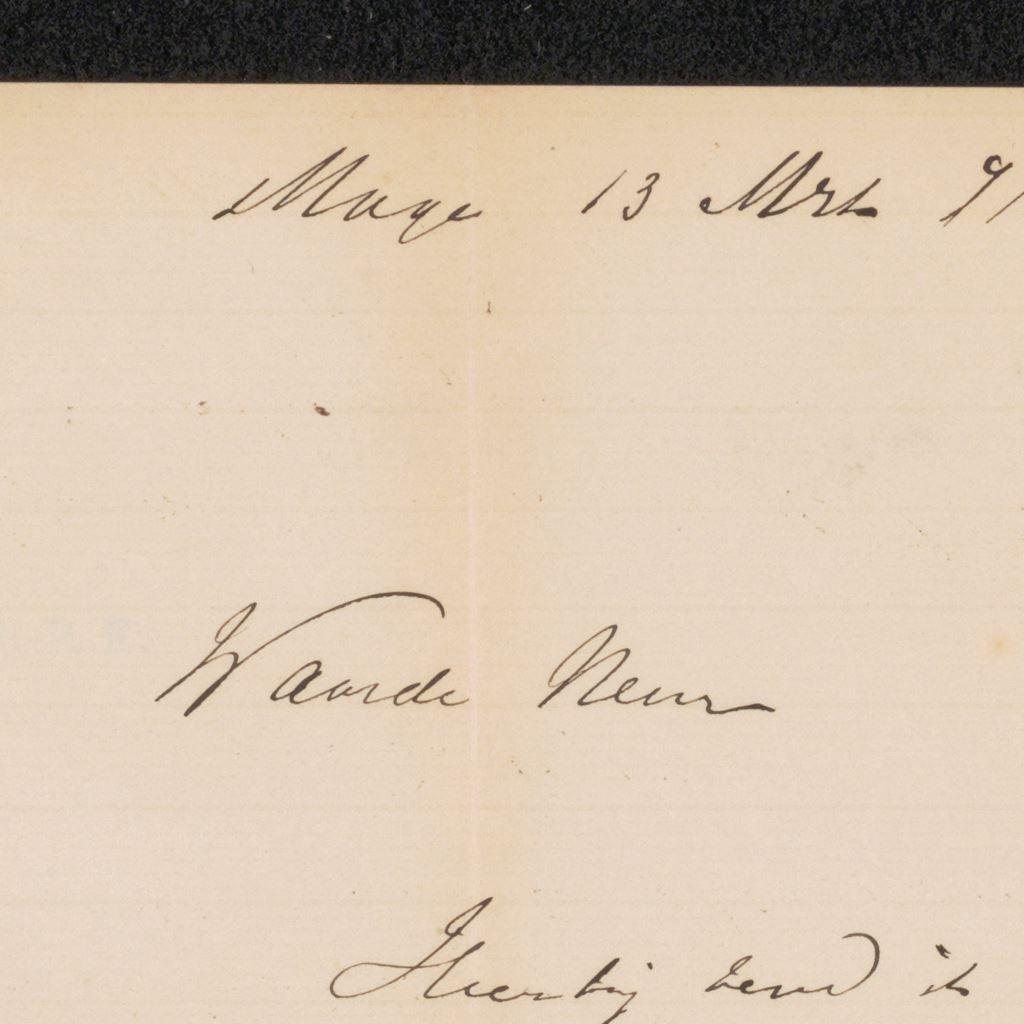 Hage 13 Mrt 91
Waarde Heer
Hierbij zend ik